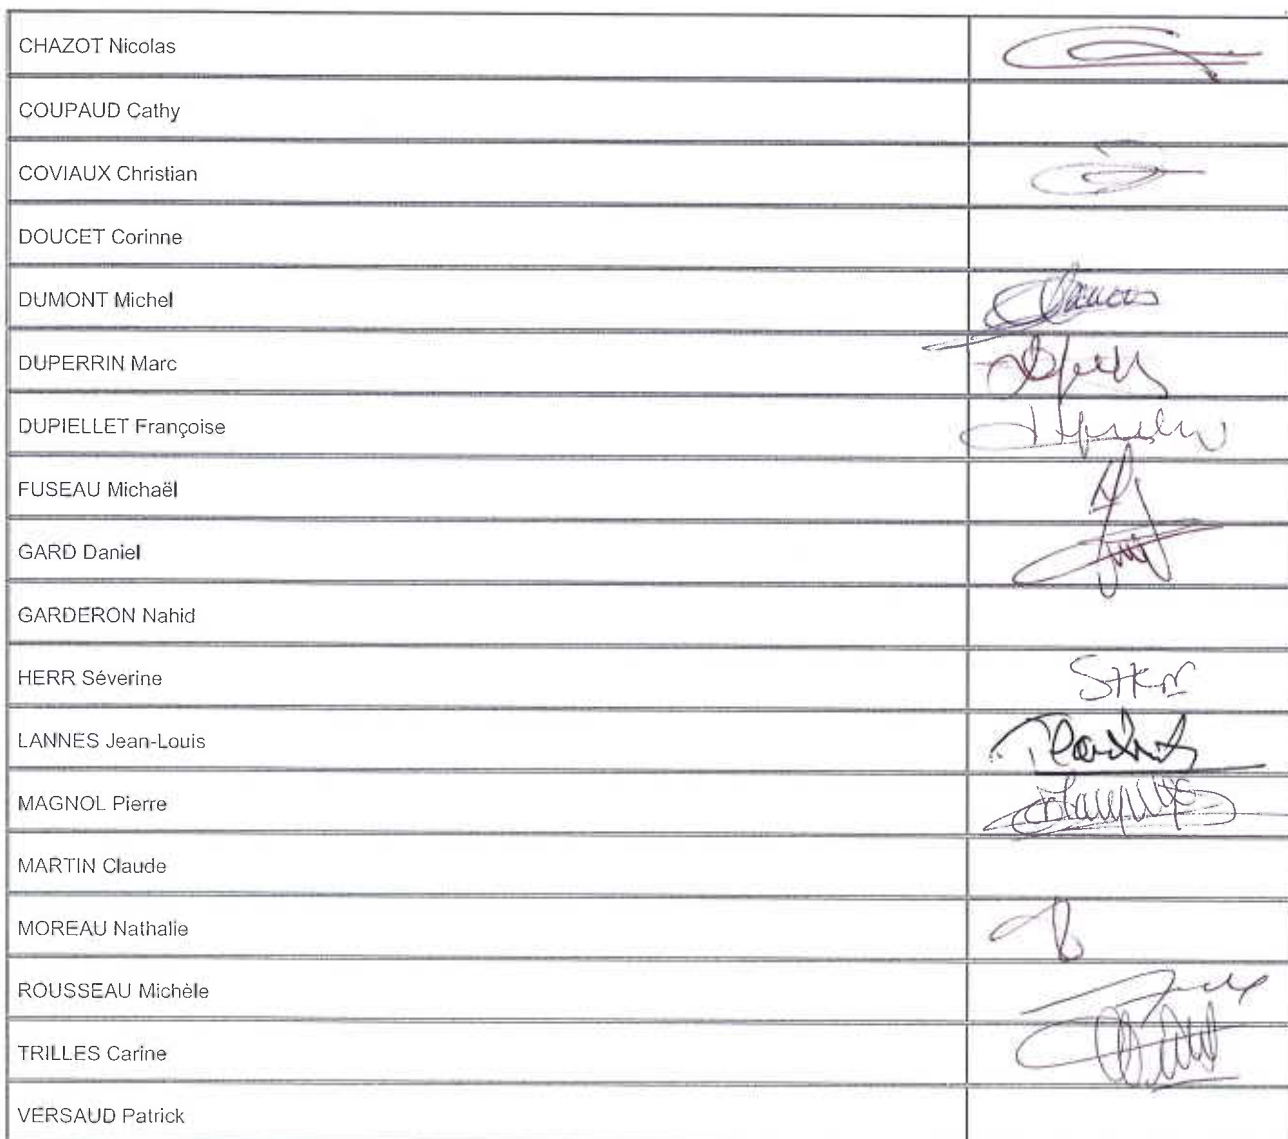 CHAZOT Nicolas
COUPAUD Cathy
COVIAUX Christian
DOUCET Corinne
DUMONT Michel
DUPERRIN Marc
DUPIELLET Françoise
FUSEAU Michaël
GARD Daniel
GARDERON Nahid
HERR Séverine
LANNES Jean-Louis
MAGNOL Pierre
MARTIN Claude
MOREAU Nathalie
ROUSSEAU Michèle
TRILLES Carine
VERSAUD Patrick